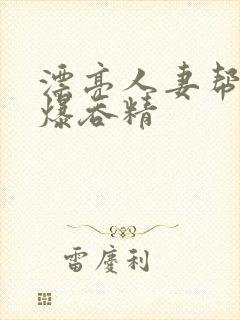 漂亮人妻帮
爆吞精
雷慶利